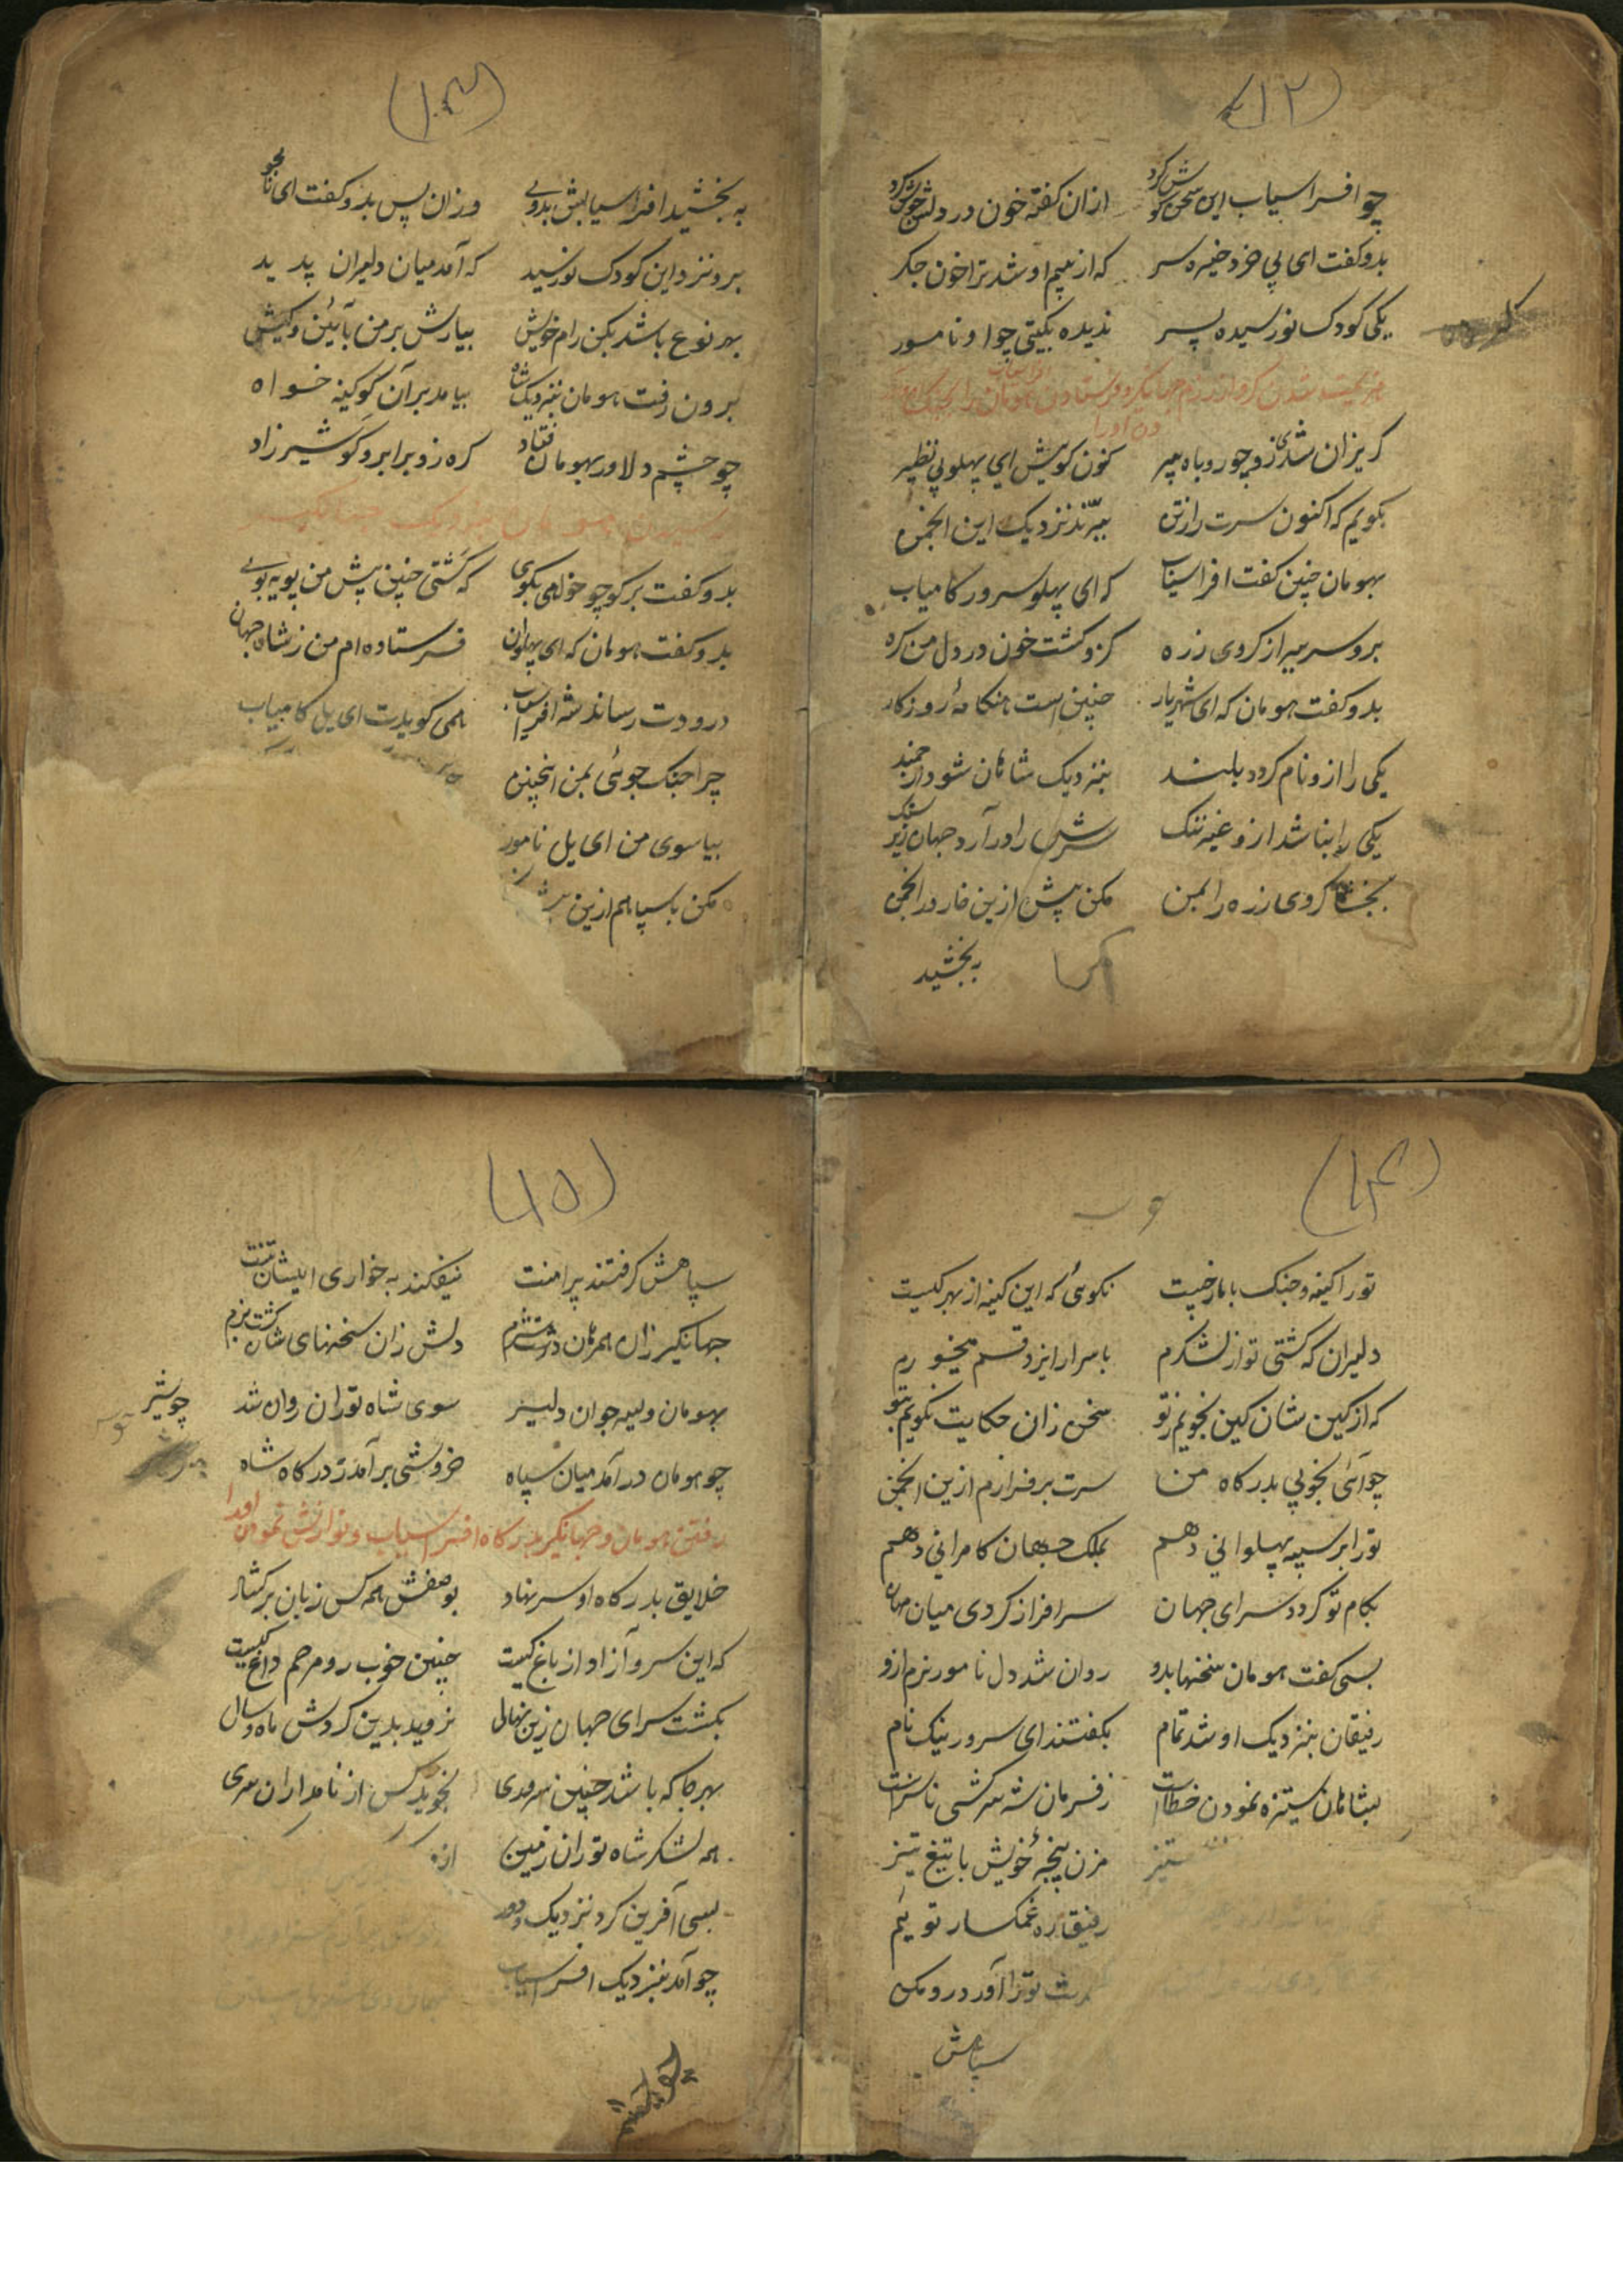 (۱۲)
چو افراسیاب این سخن گوش کرد ازان کفته خون در دلش جوش کرد
بدو کفت ای بی خرد خیره سر که از بیم او شد ترا خون جکر
یکی کودک نورسیده پسر ندیده بکیتی چو او نامور
کریزان شدی زو چو روباه پیر کنون کویش ای پهلو بی نظیر
بکویم که اکنون سرت را زتن ببرّند نزدیک این انجمن
بهومان چنین کفت افراسیاب که ای پهلو سرور کامیاب
برو سر ببر از کروی زره کزو کشت خون در دل من کره
بدو کفت هومان که ای شهریار چنین است هنکامهٔ روزکار
یکی را ازو نام کردد بلند بنزدیک شاهان شود ارجمند
یکی را بنا شد ازو غیر ننک سرش را در آرد جهان زیر سنک
ببخشا کروی زره را بمن مکن پیش ازین خار در انجمن
به بخشید
(۱۳)
به بخشید افراسیابش بدوی وزان پس بدو کفت ای نامجو
برو نزد این کودک نورسید که آمد میان دلیران پدید
بهر نوع باشد بکن رام خویش بیارش بر من بآئین و کیش
برون رفت هومان بنزدیک شاه بیامد بر آن کو کینه خواه
چو چشم دلاور بهومان فتاد کره زو برابرو کو شیرزاد
بدو کفت برکو چو خواهی بکوی که کشتی چنین پیش من پویه پوی
بدو کفت هومان که ای پهلوان فرستاده ام من ز شاه جهان
درودت رساند شه افراسیاب همی کویدت ای یل کامیاب
چرا جنک جوئی بمن اینچنین
بیا سوی من ای یل نامور
مکن با سپاهم ازین بیش
(۱۴)
تورا کینه و جنک با ما ز چیست نکوئی که این کینه از بهر کیست
دلیران که کشتی تو از لشکرم باسرار ایزد قسم میخورم
که از کین شان کین نجویم ز تو سخن زان حکایت نکویم بتو
چو آئی بخوبی بدرکاه من سرت برفرازم ازین انجمن
تورا بر سپه پهلوانی دهم بملک جهان کامرانی دهم
بکام تو کردد سرای جهان سرافراز کردی میان مهان
بسی کفت هومان سخنها بدو روان شد دل نامور نرم ازو
رفیقان بنزدیک او شد تمام بکفتند ای سرور نیک نام
بشاهان ستیزه نمودن خطاست ز فرمان شه سرکشی ناسزاست
ستیز مزن پنجهٔ خویش با تیغ تیز
رفیقان غمکسار توئیم
تو را آورد
سپاهش
(۱۵)
سپاهش کرفتند پیرامنت نیفکند به خواری ایشان تنت
جهانکیر زان همرهان دلش زان سخنهای شان کشت نرم
بهومان ولیه جوان دلیر سوی شاه توران روان شد چو شیر
چو هومان در آمد میان سپاه خروشی برآمد ز درکاه شاه
رفتن هومان و جهانکیر بدرکاه افراسیاب و نوازش نمودن اورا
خلایق بدرکاه او سر نهاد بوصفش همه کس زبان برکشاد
که این سرو آزاد از باغ کیست چنین خوب رو مرحم داغ کیست
بکشت سرای جهان زین نهال نروید بدین کردش ماه و سال
بهر جا که باشد چنین سروری نجوید کس از نامداران سری
همه لشکر شاه توران زمین
بسی آفرین کرد نزدیک و دور
چو آمد بنزدیک افراسیاب